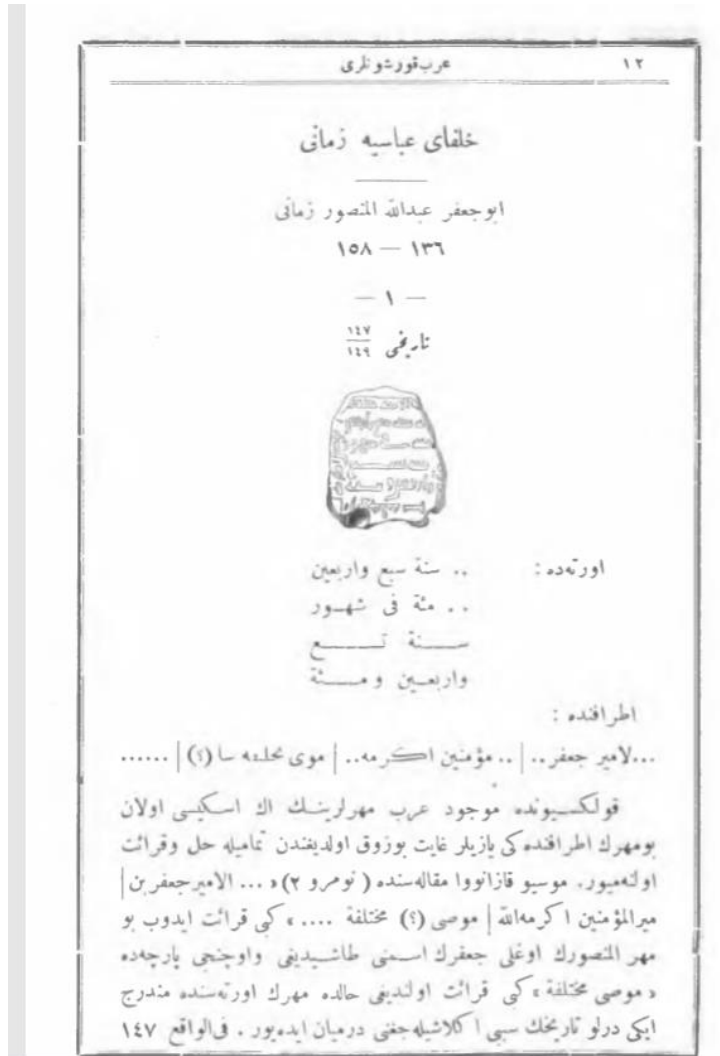 ١٢ عرب قورشونلری
خلفای عباسیه زمانی
ابوجعفر عبدالله المنصور زمانی
١٣٦ — ١٥٨
— ١ —
تاریخی ١٤٧/١٤٩
اورته‌ده : .. سنة سبع واربعین
.. مئة فی شهـور
ســنة تـــع
واربعـین ومــئة
اطرافنده :
...لامیر جعفر.. | .. مؤمنین اکرمه.. | موی نحلـفه سا (؟) | ......
قولکسیونده موجود عرب مهرلرینك اك اسکیسی اولان
بومهرك اطرافنده کی یازیلر غایت بوزوق اولدیغندن تمامیله حل وقرائت
اولنه‌میور. موسیو قازانووا مقاله‌سنده ( نومرو ٢) « ... الامیرجعفربن |
میرالمؤمنین اکرمه‌الله | موصی (؟) مختلفة .... » کبی قرائت ایدوب بو
مهر المنصورك اوغلی جعفرك اسمنی طاشـیدیغی واوچنجی پارچه‌ده
« موصی مختلفة » کبی قرائت اولندیغی حالده مهرك اورته‌سنده مندرج
ایکی درلو تاریخك سببی اکلاشیله‌جغنی درمیان ایده‌یور . فی‌الواقع ١٤٧